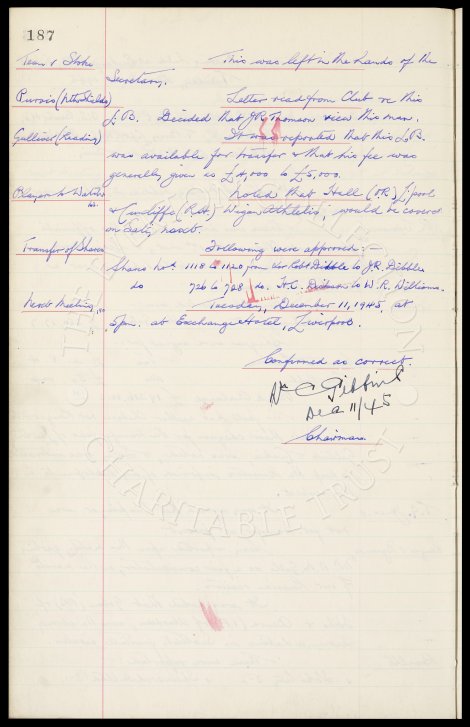 187
Team v Stoke This was left in the hands of the
Secretary.
Purvis (Nth Shields) Letter read from Club re this
L.B. Decided that J.R. Thomson view this man.
Gulliver (Reading) It was reported that this L.B.
was available for transfer & that his fee was
generally given as £4,000 to £5,000.
Players to Watch Noted that Hall (O.R.) L'pool
& Cunliffe (R.H.) Wigan Athletic, would be covered
on Satdy. next.
Transfer of Shares Following were approved:-
Shares Nos. 1118 to 1120 from Robt Dibble to J.R. Dibble
do 726 to 728 do. H.C. to W.R. Williams.
Next Meeting Tuesday, December 11, 1945, at
5pm. at Exchange Hotel, Liverpool.
Confirmed as correct.
W C Gibbins
Dec 11/45
Chairman
CHARITABLE TRUST